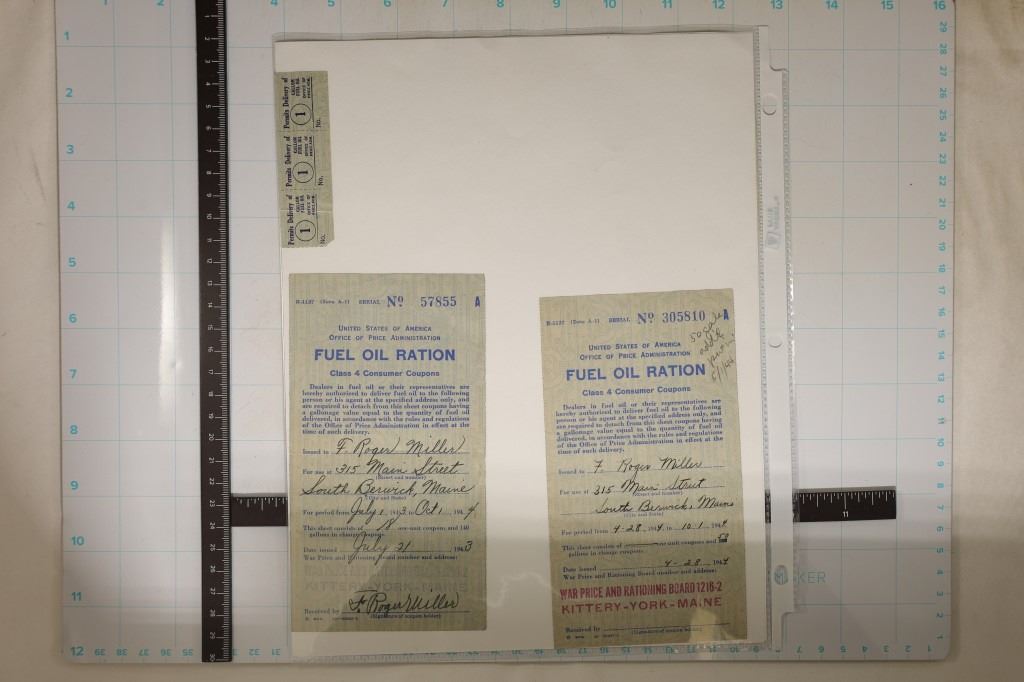 Permits Delivery of
1
GALLON
FUEL OIL
OFFICE OF
No.
Permits Delivery of
1
GALLON
FUEL OIL
OFFICE OF
No.
Permits Delivery of
1
GALLON
FUEL OIL
OFFICE OF
No.
R-1127 (Zone A-1) SERIAL No 57855 A
UNITED STATES OF AMERICA
OFFICE OF PRICE ADMINISTRATION
FUEL OIL RATION
Class 4 Consumer Coupons
Dealers in fuel oil or their representatives are
hereby authorized to deliver fuel oil to the following
person or his agent at the specified address only, and
are required to detach from this sheet coupons having
a gallonage value equal to the quantity of fuel oil
delivered, in accordance with the rules and regulations
of the Office of Price Administration in effect at the
time of such delivery.
Issued to F. Roger Miller
For use at 315 Main Street
(Street and Number)
South Berwick, Maine
(City and State)
For period from July 1, 1943, Oct 1, 1944
This sheet consists of 18 one-unit coupons and 140
gallons in change coupons.
Date issued July 21 1943
War Price and Rationing Board number and address:
KITTERY-YORK-MAINE
Received by F. Roger Miller
(Signature of coupon holder)
R-1127 (Zone A-1) SERIAL No 305810 A
UNITED STATES OF AMERICA
OFFICE OF PRICE ADMINISTRATION
FUEL OIL RATION
Class 4 Consumer Coupons
Dealers in fuel oil or their representatives are
hereby authorized to deliver fuel oil to the following
person or his agent at the specified address only, and
are required to detach from this sheet coupons having
a gallonage value equal to the quantity of fuel oil
delivered, in accordance with the rules and regulations
of the Office of Price Administration in effect at the
time of such delivery.
Issued to F. Roger Miller
For use at 315 Main Street
(Street and Number)
South Berwick, Maine
(City and State)
For period from 4-28, 1944 to 10-1, 1944
This sheet consists of one-unit coupons and 50
gallons in change coupons.
Date issued 4-28 1944
War Price and Rationing Board number and address:
WAR PRICE AND RATIONING BOARD 1216-2
KITTERY-YORK-MAINE
Received by
(Signature of coupon holder)